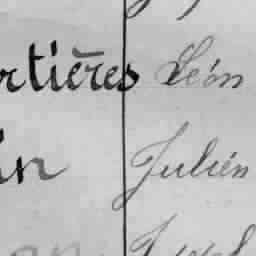 rtières Léon
in Julien